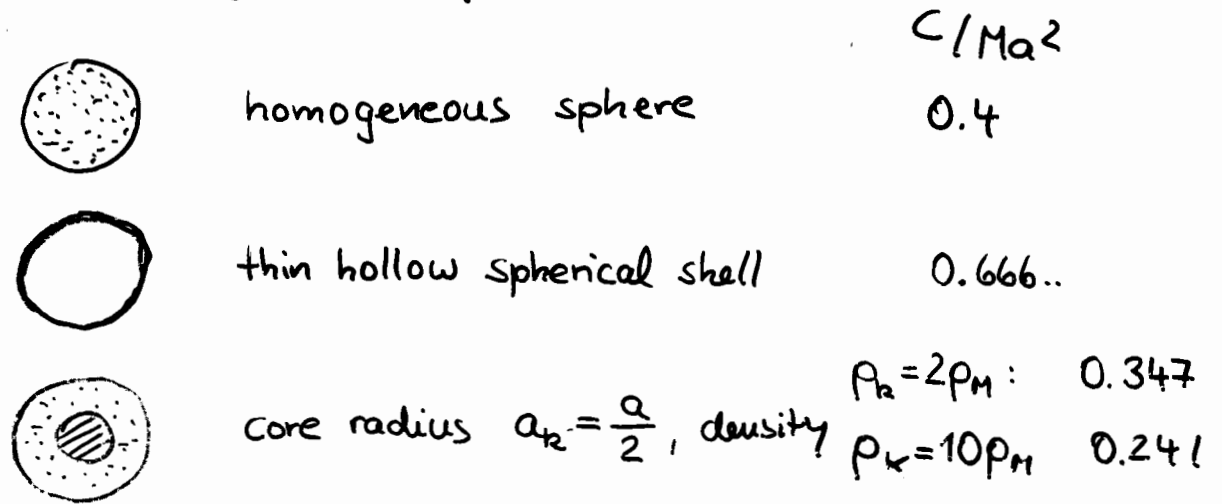 C/Ma²
homogeneous sphere 0.4
thin hollow spherical shell 0.666..
core radius aₖ = a/2, density ρₖ=2ρM: 0.347
ρₖ=10ρM 0.241